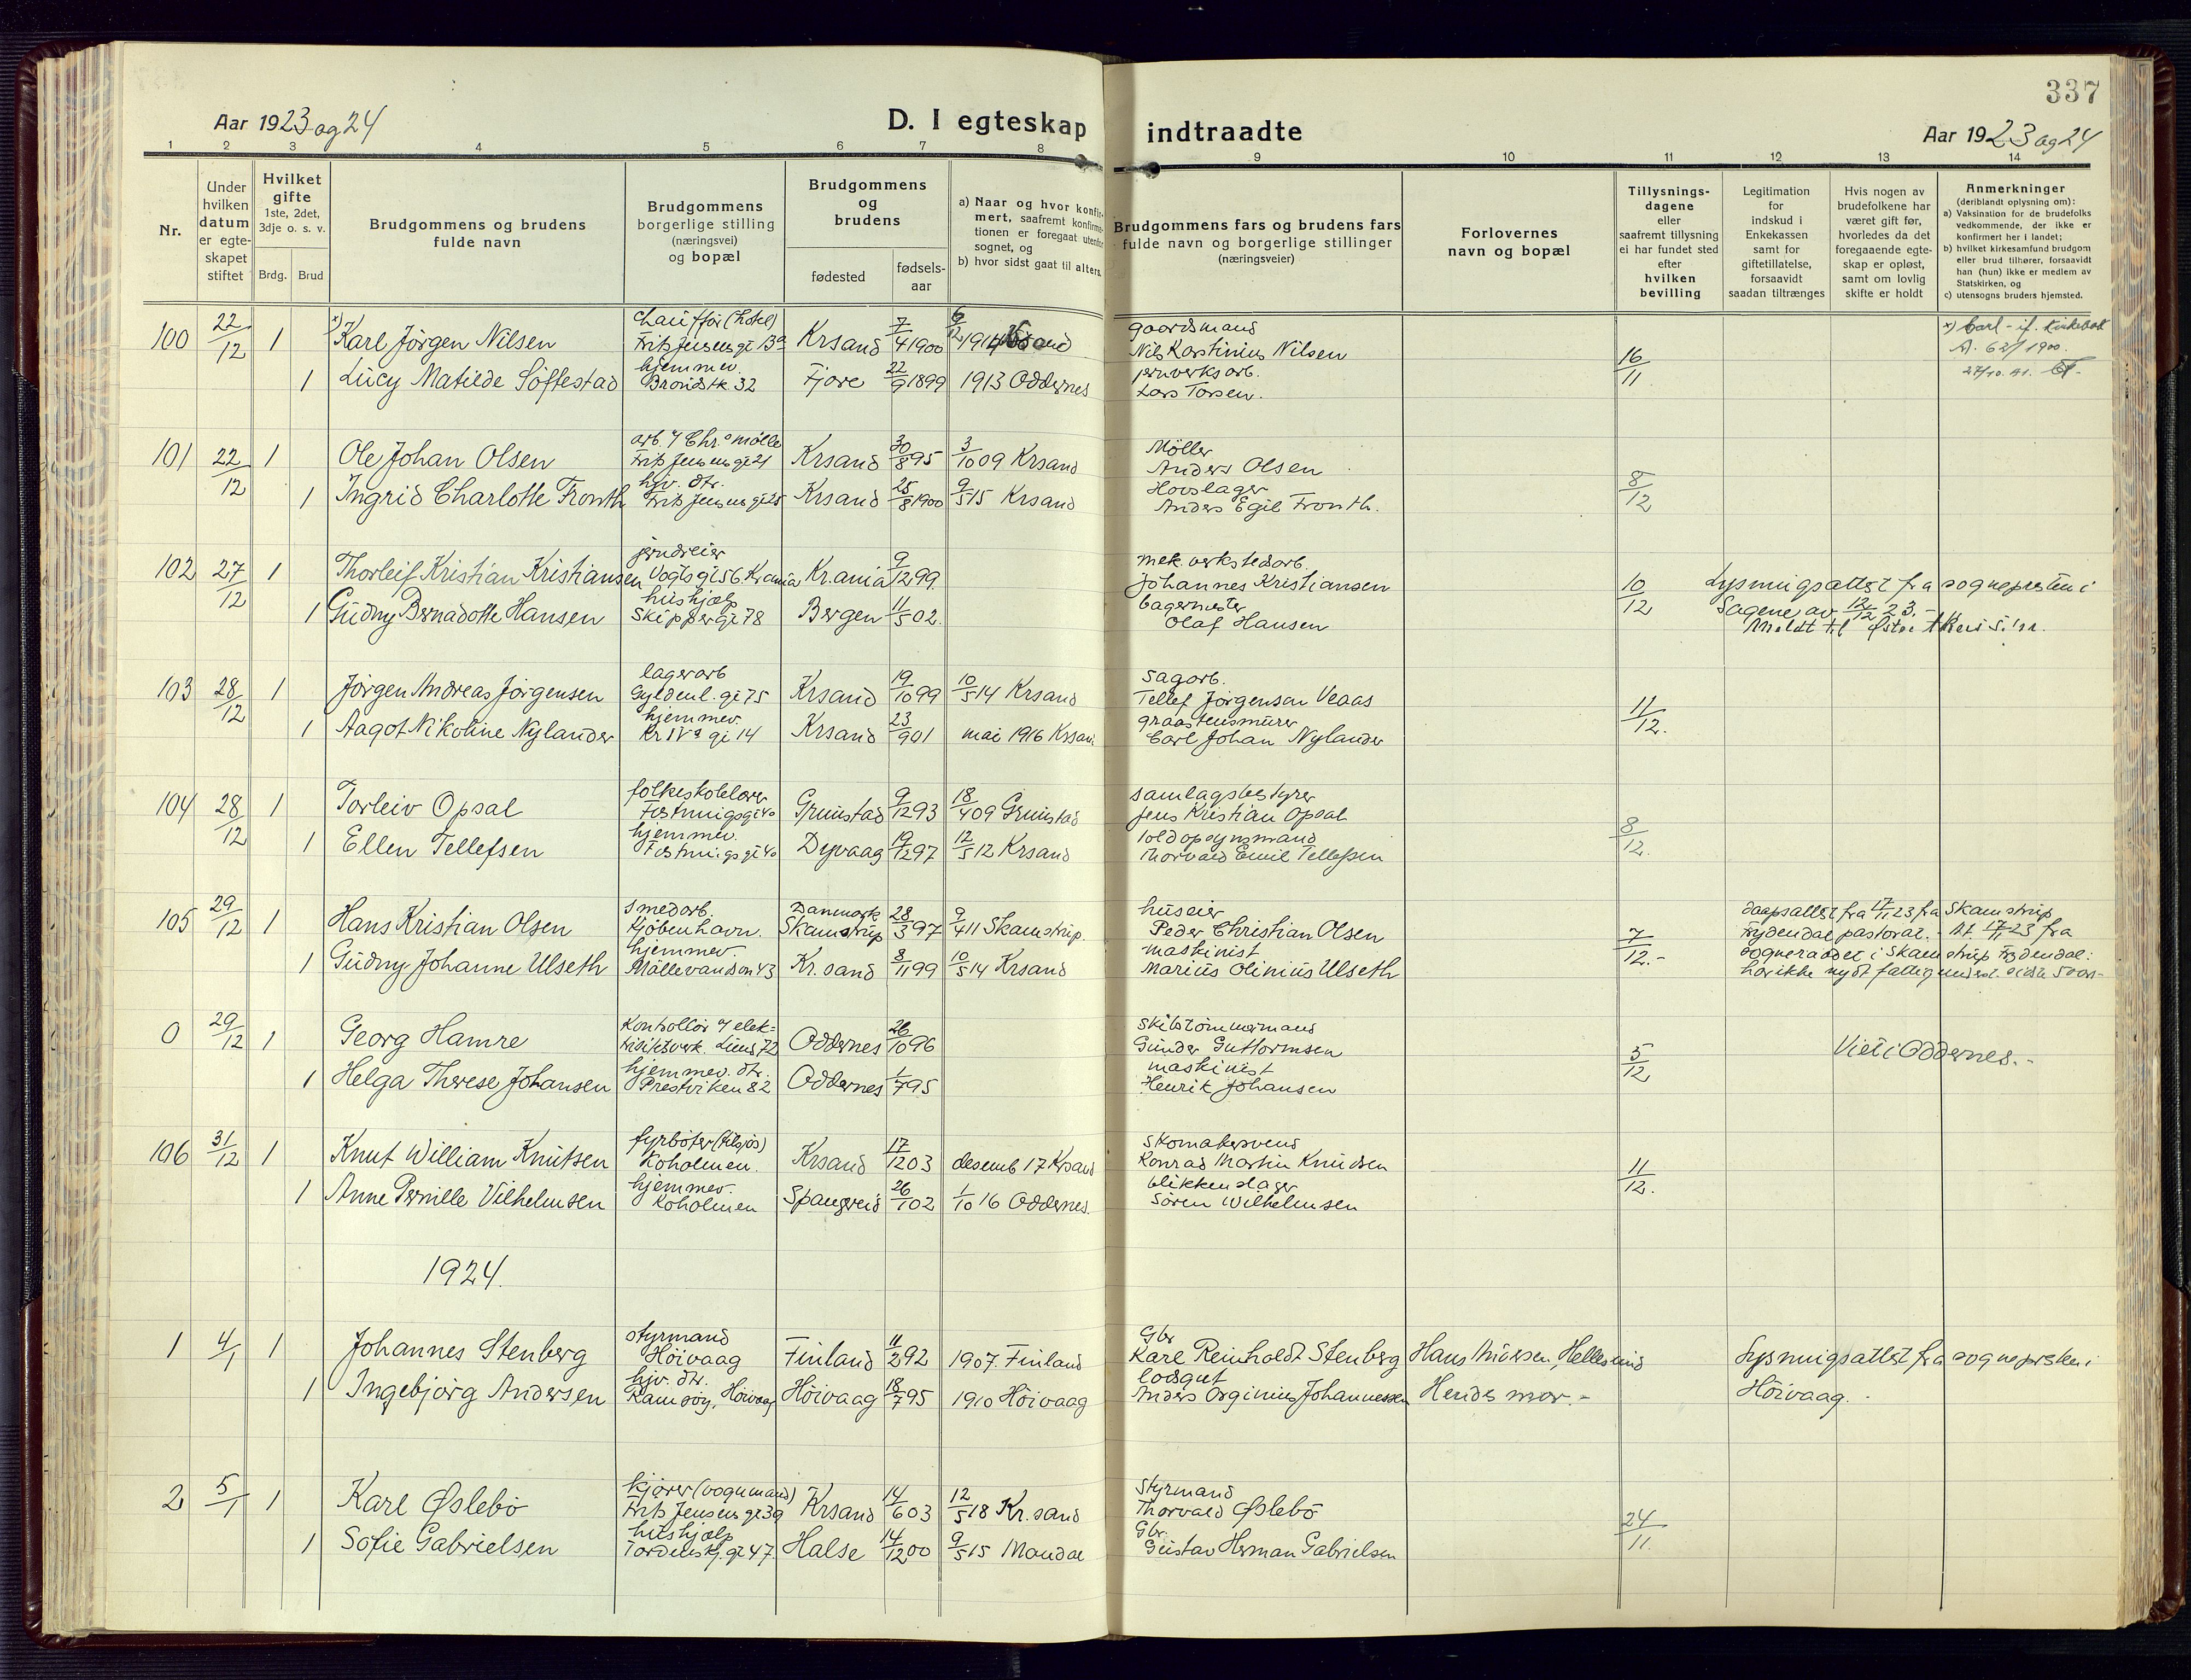 337
Aar 1923 og 24
D. I egteskap indtraadte
Aar 1923 og 24
1 2 3 4 5 6 7 8 9 10 11 12 13 14
Nr.
Under hvilken datum er egteskapet stiftet
Hvilket gifte 1ste, 2det, 3dje o. s. v.
Brdg. Brud
Brudgommens og brudens fulde navn
Brudgommens borgerlige stilling (næringsvei) og bopæl
Brudgommens og brudens
fødested
fødsels-aar
a) Naar og hvor konfirmert, saafremt konfirmationen er foregaat utenfor sognet, og
b) hvor sidst gaat til alters.
Brudgommens fars og brudens fars fulde navn og borgerlige stillinger (næringsveier)
Forlovernes navn og bopæl
Tillysningsdagene eller saafremt tillysning ei har fundet sted efter hvilken bevilling
Legitimation for indskud i Enkekassen samt for giftetillatelse, forsaavidt saadan tiltrænges
Hvis nogen av brudefolkene har været gift før, hvorledes da det foregaaende egteskap er opløst, samt om lovlig skifte er holdt
Anmerkninger (deriblandt oplysning om):
a) Vaksination for de brudefolks vedkommende, der ikke er konfirmert her i landet;
b) hvilket kirkesamfund brudgom eller brud tilhører, forsaavidt han (hun) ikke er medlem av Statskirken, og
c) utensogns bruders hjemsted.
100 22/12 1 x) Karl Jörgen Nilsen chauffør (hotel) Fritz Jensens gt 13a Krsand 7/4 1900 1914 Krsand gaardsmand Nils Karstinius Nilsen 16/11 x) Carl - if. kirkebok A. 62/1900. 27/10. 41.
1 Lucy Matilde Söftestad hjemmev. Fjære 22/9 1899 1913 Oddernes jernverksarb. Lars Torsen.
101 22/12 1 Ole Johan Olsen Fritz Jensens gt 21 Krsand 30/8 95 3/10 09 Krsand Møller Anders Olsen 8/12
1 Ingrid Charlotte Fronth hjv. dtr. Fritz Jensens gt 25 Krsand 25/8 1900 9/5 15 Krsand Hovslager Anders Egil Fronth.
102 27/12 1 Thorleif Kristian Kristiansen Vogts gt 56. Kr.ania Kr.ania 9/12 99. mek. verkstedarb. Johannes Kristiansen 10/12 Lysningsattest fra sognepresten i Sagene av 12/12 23. -
1 Gudny Bernadotte Hansen hushjælp Skippergt 78 Bergen 11/5 02. bagermester Olaf Hansen
103 28/12 1 Jörgen Andreas Jörgensen lagerarb Gyldenl. gt 75 Krsand 19/10 99 10/5 14 Krsand sagarb. Tellef Jörgenson Veaas 11/12.
1 Aagot Nikoline Nylander hjemmev. Kr IVs gt 14 Krsand 23/9 01 mai 1916 Krsand graastensmurer Carl Johan Nylander
104 28/12 1 Torleiv Opsal folkeskolelærer Festningsgt 40 Grimstad 9/12 93 18/4 09 Grimstad samlagsbestyrer Jens Kristian Opsal 8/12.
1 Ellen Tellefsen hjemmev. Festningsgt 40 Dypvaag 19/12 97 12/5 12 Krsand toldopsynsmand Thorvald Emil Tellefsen
105 29/12 1 Hans Kristian Olsen smedarb. Kjöbenhavn. Danmark Skamstrup 28/3 97 9/4 11 Skamstrup. huseier Peder Christian Olsen 7/12.- daapsattest fra 17/11 23 fra Skamstrup Frydendal pastorat. - At. 17/11 23 fra
1 Gudny Johanne Ulseth hjemmev. Möllevandsv 43 Kr. sand 8/11 99 10/5 14 Krsand maskinist Marius Olinius Ulseth sogneraadet i Skamstrup Frydendal: har ikke nydt fattigunderst. sidste 5 aar-
0 29/12 1 Georg Hamre Kontrollör v elektrisitetsverk. Lund 72 Oddernes 26/10 96 skibstömmermand Gunder Guttormsen 5/12 Viet i Oddernes. -
1 Helga Therese Johansen hjemmev. dtr. Prestviken 82 Oddernes 1/7 95 maskinist Henrik Johansen
106 31/12 1 Knut William Knutsen fyrböter (tilsjös) Koholmen. Krsand 17/12 03 desemb 17 Krsand skomakersvend Konrad Martin Knudsen 11/12.
1 Anne Pernille Vilhelmsen hjemmev. Koholmen Spangereid 26/1 02 1/10 16 Oddernes. blikkenslager Sören Wilhelmsen
1924.
1 4/1 1 Johannes Stenberg styrmand Höivaag Finland 11/2 92 1907. Finland Gbr Karl Reinholdt Stenberg Hellesund Lysningsattest fra sognepresten i
1 Ingebjörg Andersen hjv. dtr. Ramsöy, Höivaag Höivaag 18/7 95 1910 Höivaag lodsgut Anders Orginius Johannessen Hendes mor. - Höivaag. -
2 5/1 1 Karl Øslebö kjører (vognmand) Fritz Jensens gt 39 Krsand 14/6 03 12/5 18 Kr. sand Styrmand Thorvald Øslebö 24/11.
1 Sofie Gabrielsen hushjælp Tordenskj. gt 47. Halse 14/12 00 9/5 15 Mandal Gbr. Gustav Herman Gabrielsen